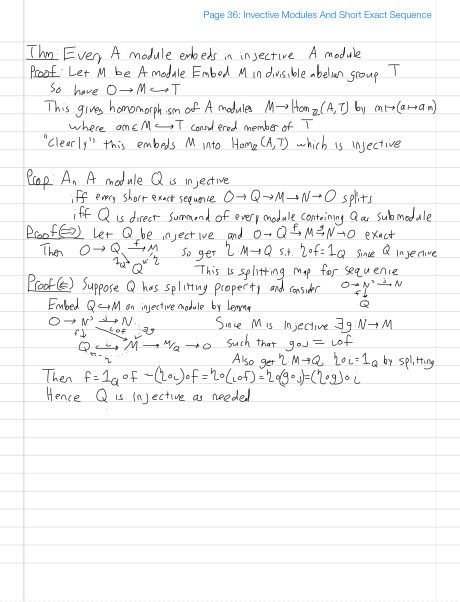 Page 36: Invective Modules And Short Exact Sequence
Thm: Every A module embeds in injective A module
Proof: Let M be A module Embed M in divisible abelian group T
So have 0→M↪T
This gives homomorphism of A modules M→Hom_Z(A,T) by m↦(a↦am)
where am∈M↪T considered member of T
"Clearly" this embeds M into Hom_Z(A,T) which is injective
Prop: An A module Q is injective
iff every short exact sequence 0→Q→M→N→0 splits
iff Q is direct summand of every module containing Q as submodule
Proof(⇒) Let Q be injective and 0→Q→f M→g N→0 exact
Then 0→Q→f M So get η: M→Q s.t. η∘f=1_Q since Q injective
1_Q Q η This is splitting map for sequence
Proof(⇐) Suppose Q has splitting property and consider 0→N'→i N
f↓
Embed Q↪M an injective module by lemma Q
0→N'→j N Since M is injective ∃g: N→M
f↓ i∘f ∃g
Q→i M→M/Q→0 such that g∘j = i∘f
η Also get η: M→Q, η∘i=1_Q by splitting
Then f=1_Q∘f=(η∘i)∘f=η∘(i∘f)=η∘(g∘j)=(η∘g)∘i
Hence Q is injective as needed